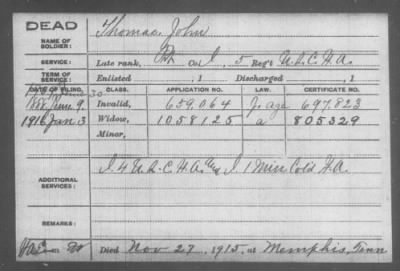 DEAD
NAME OF SOLDIER: Thomas, John
SERVICE: Late rank, Pvt Co. I, 5 Reg't U.S.C.H.A.
TERM OF SERVICE: Enlisted , 1 Discharged , 1
DATE OF FILING. CLASS. APPLICATION NO. LAW. CERTIFICATE NO.
1888 June 9. Invalid, 659,064 J. age 697.823
1916 Jan 3 Widow, 1058125 a 805329
Minor,
ADDITIONAL SERVICES: I 4 U.S.C.H.A. and I 1 Miss Cold H.A.
REMARKS:
Died Nov 27, 1915, at Memphis, Tenn